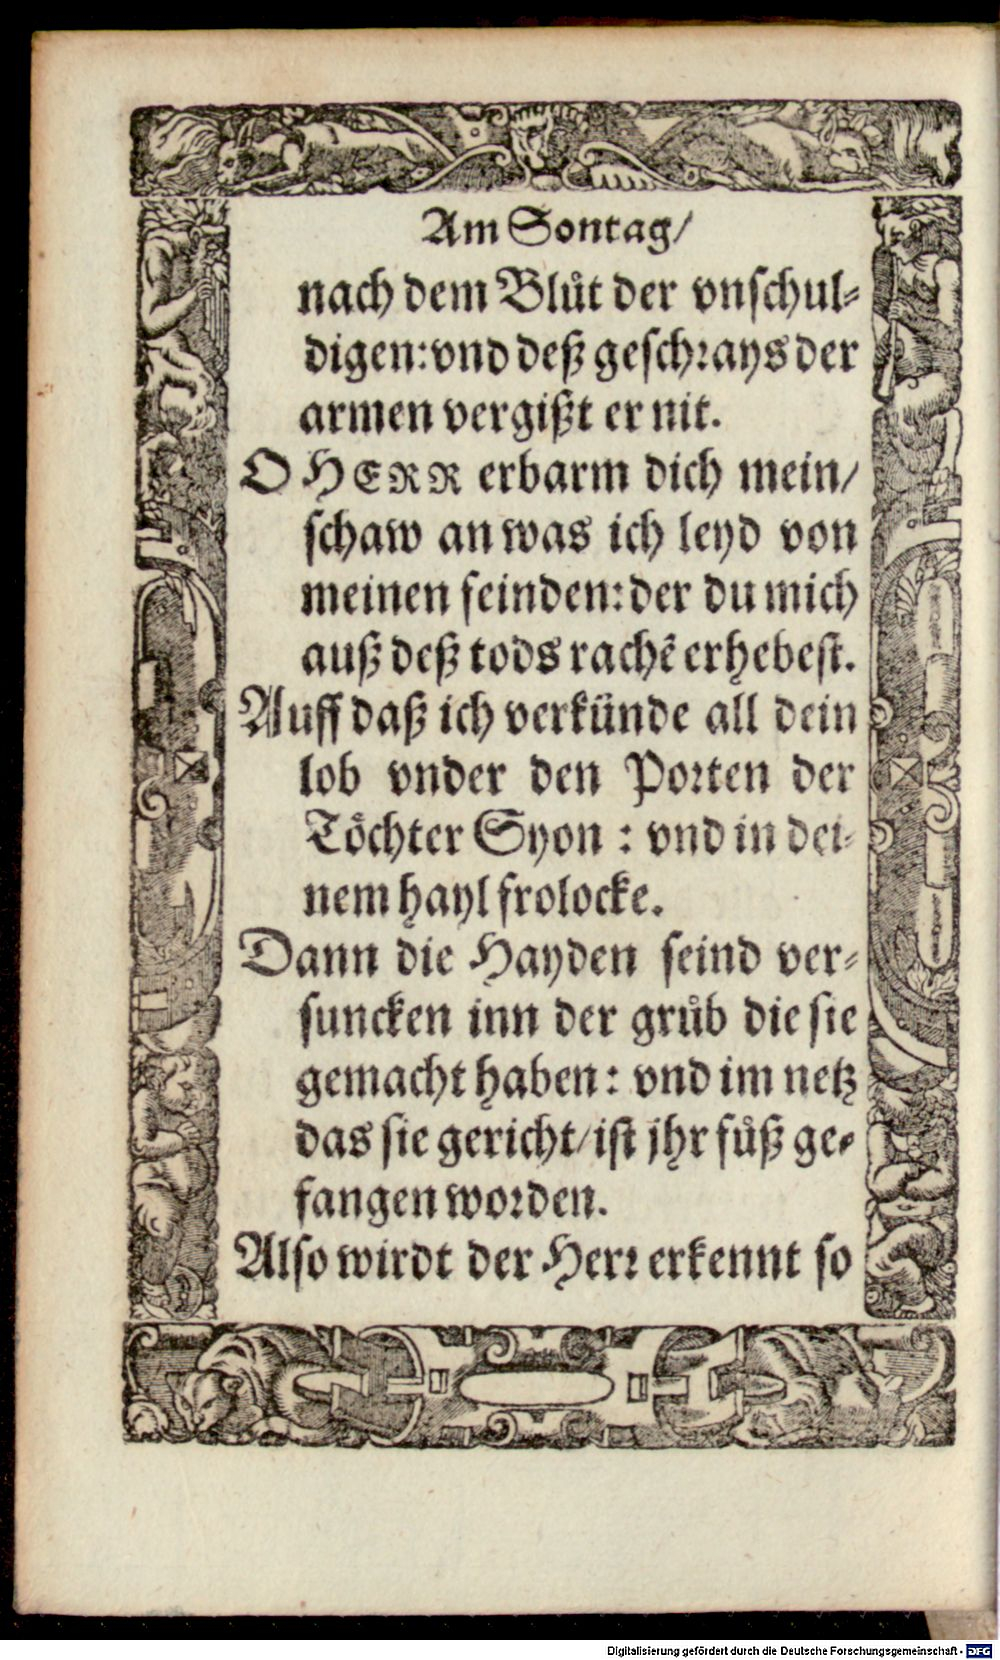 Am Sontag/
nach dem Blůt der vnschul-
digen: vnd deß geschrays der
armen vergißt er nit.
O HERR erbarm dich mein/
schaw an was ich leyd von
meinen feinden: der du mich
auß deß tods rachẽ erhebest.
Auff daß ich verkünde all dein
lob vnder den Porten der
Töchter Syon : vnd in dei-
nem hayl frolocke.
Dann die Hayden seind ver-
suncken inn der grůb die sie
gemacht haben: vnd im netz
das sie gericht/ ist jhr fůß ge-
fangen worden.
Also wirdt der Herr erkennt so
Digitalisierung gefördert durch die Deutsche Forschungsgemeinschaft - DFG